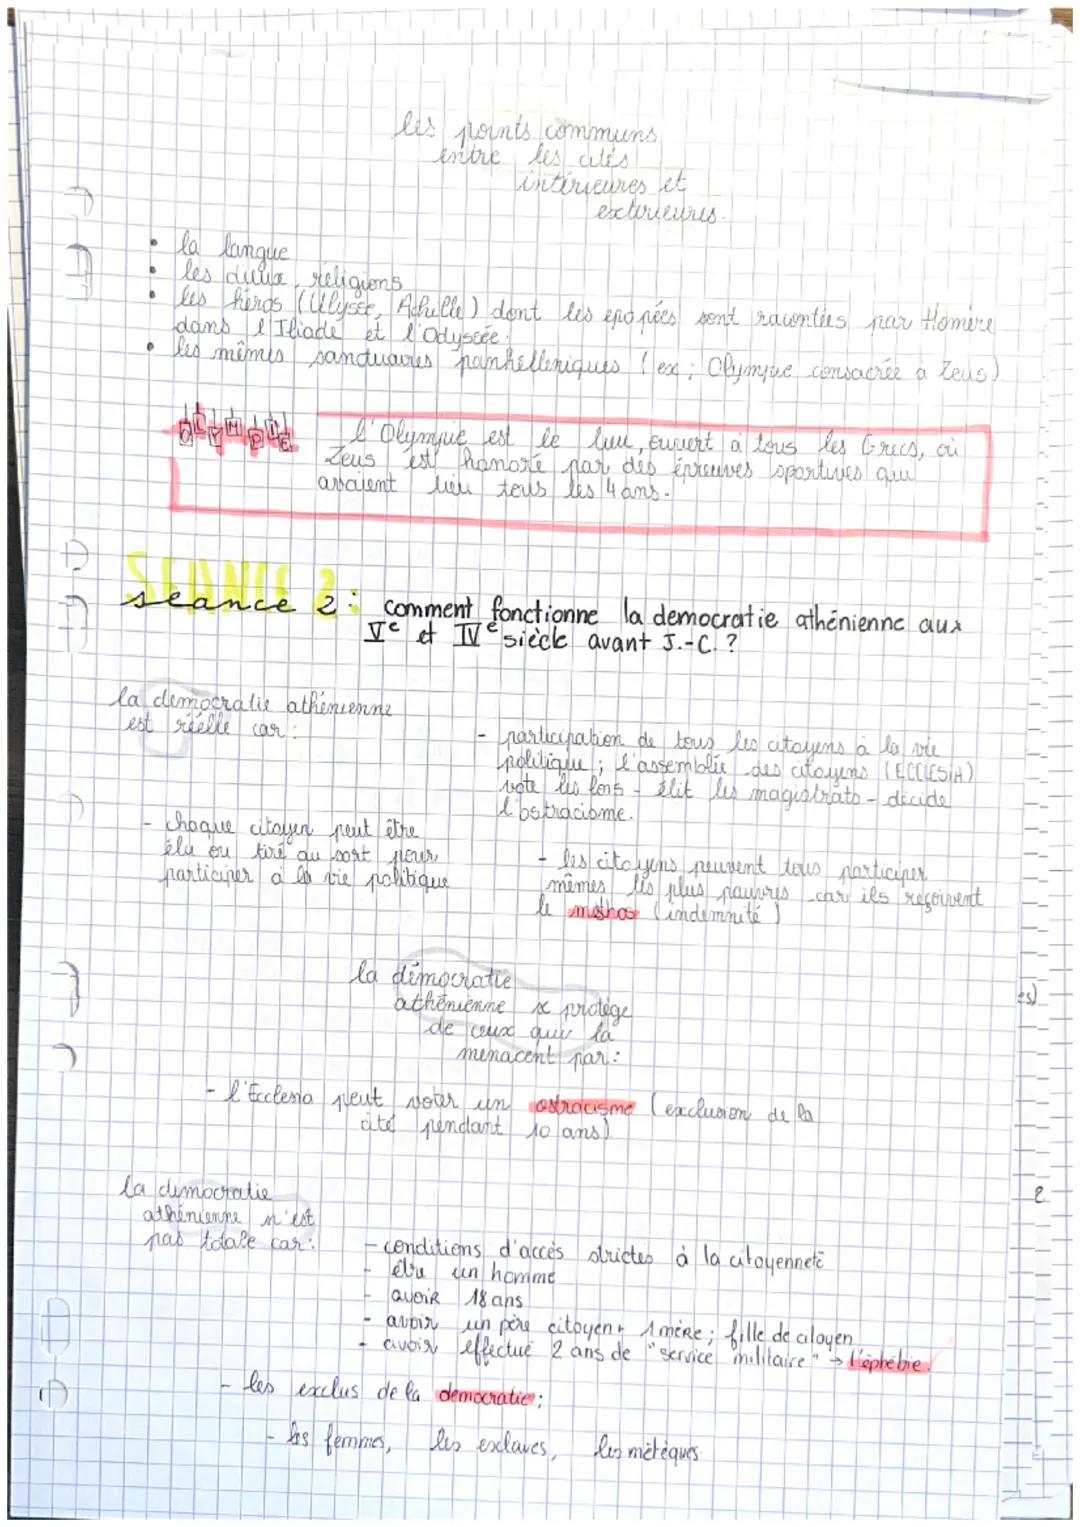 les points communs
entre les cités
intérieures et
exterieures.
• la langue
• les dieux, religions
• les héros (Ulysse, Achille) dont les epopées sont racontées par Homère
dans l'Iliade et l'Odyssée.
• les mêmes sanctuaires panhelleniques (ex ; Olympie consacrée à Zeus)
OLYMPIE
l'Olympie est le lieu, ouvert à tous les Grecs, où
Zeus est honoré par des épreuves sportives qui
avaient lieu tous les 4 ans.
SEANCE 2:
seance 2 : comment fonctionne la democratie athénienne aux
Ve et IVe siècle avant J.-C. ?
la democratie athénienne
est réelle car :
- participation de tous les citoyens à la vie
politique ; l'assemblée des citoyens (ECCLESIA)
vote les lois - élit les magistrats - décide
l'ostracisme.
- chaque citoyen peut être
élu ou tiré au sort pour
participer à la vie politique
- les citoyens peuvent tous participer
mêmes les plus pauvres car ils reçoivent
le misthos (indemnité)
la démocratie
athénienne se protège
de ceux qui la
menacent par :
es)
- l'Ecclesia peut voter un ostracisme (exclusion de la
cité pendant 10 ans)
la democratie
athénienne n'est
pas totale car :
- conditions d'accès strictes à la citoyenneté
- être un homme
- avoir 18 ans
- avoir un père citoyen + 1 mère ; fille de citoyen
- avoir effectué 2 ans de "service militaire" → l'éphébie.
- les exclus de la democratie ;
- les femmes, les esclaves, les métèques